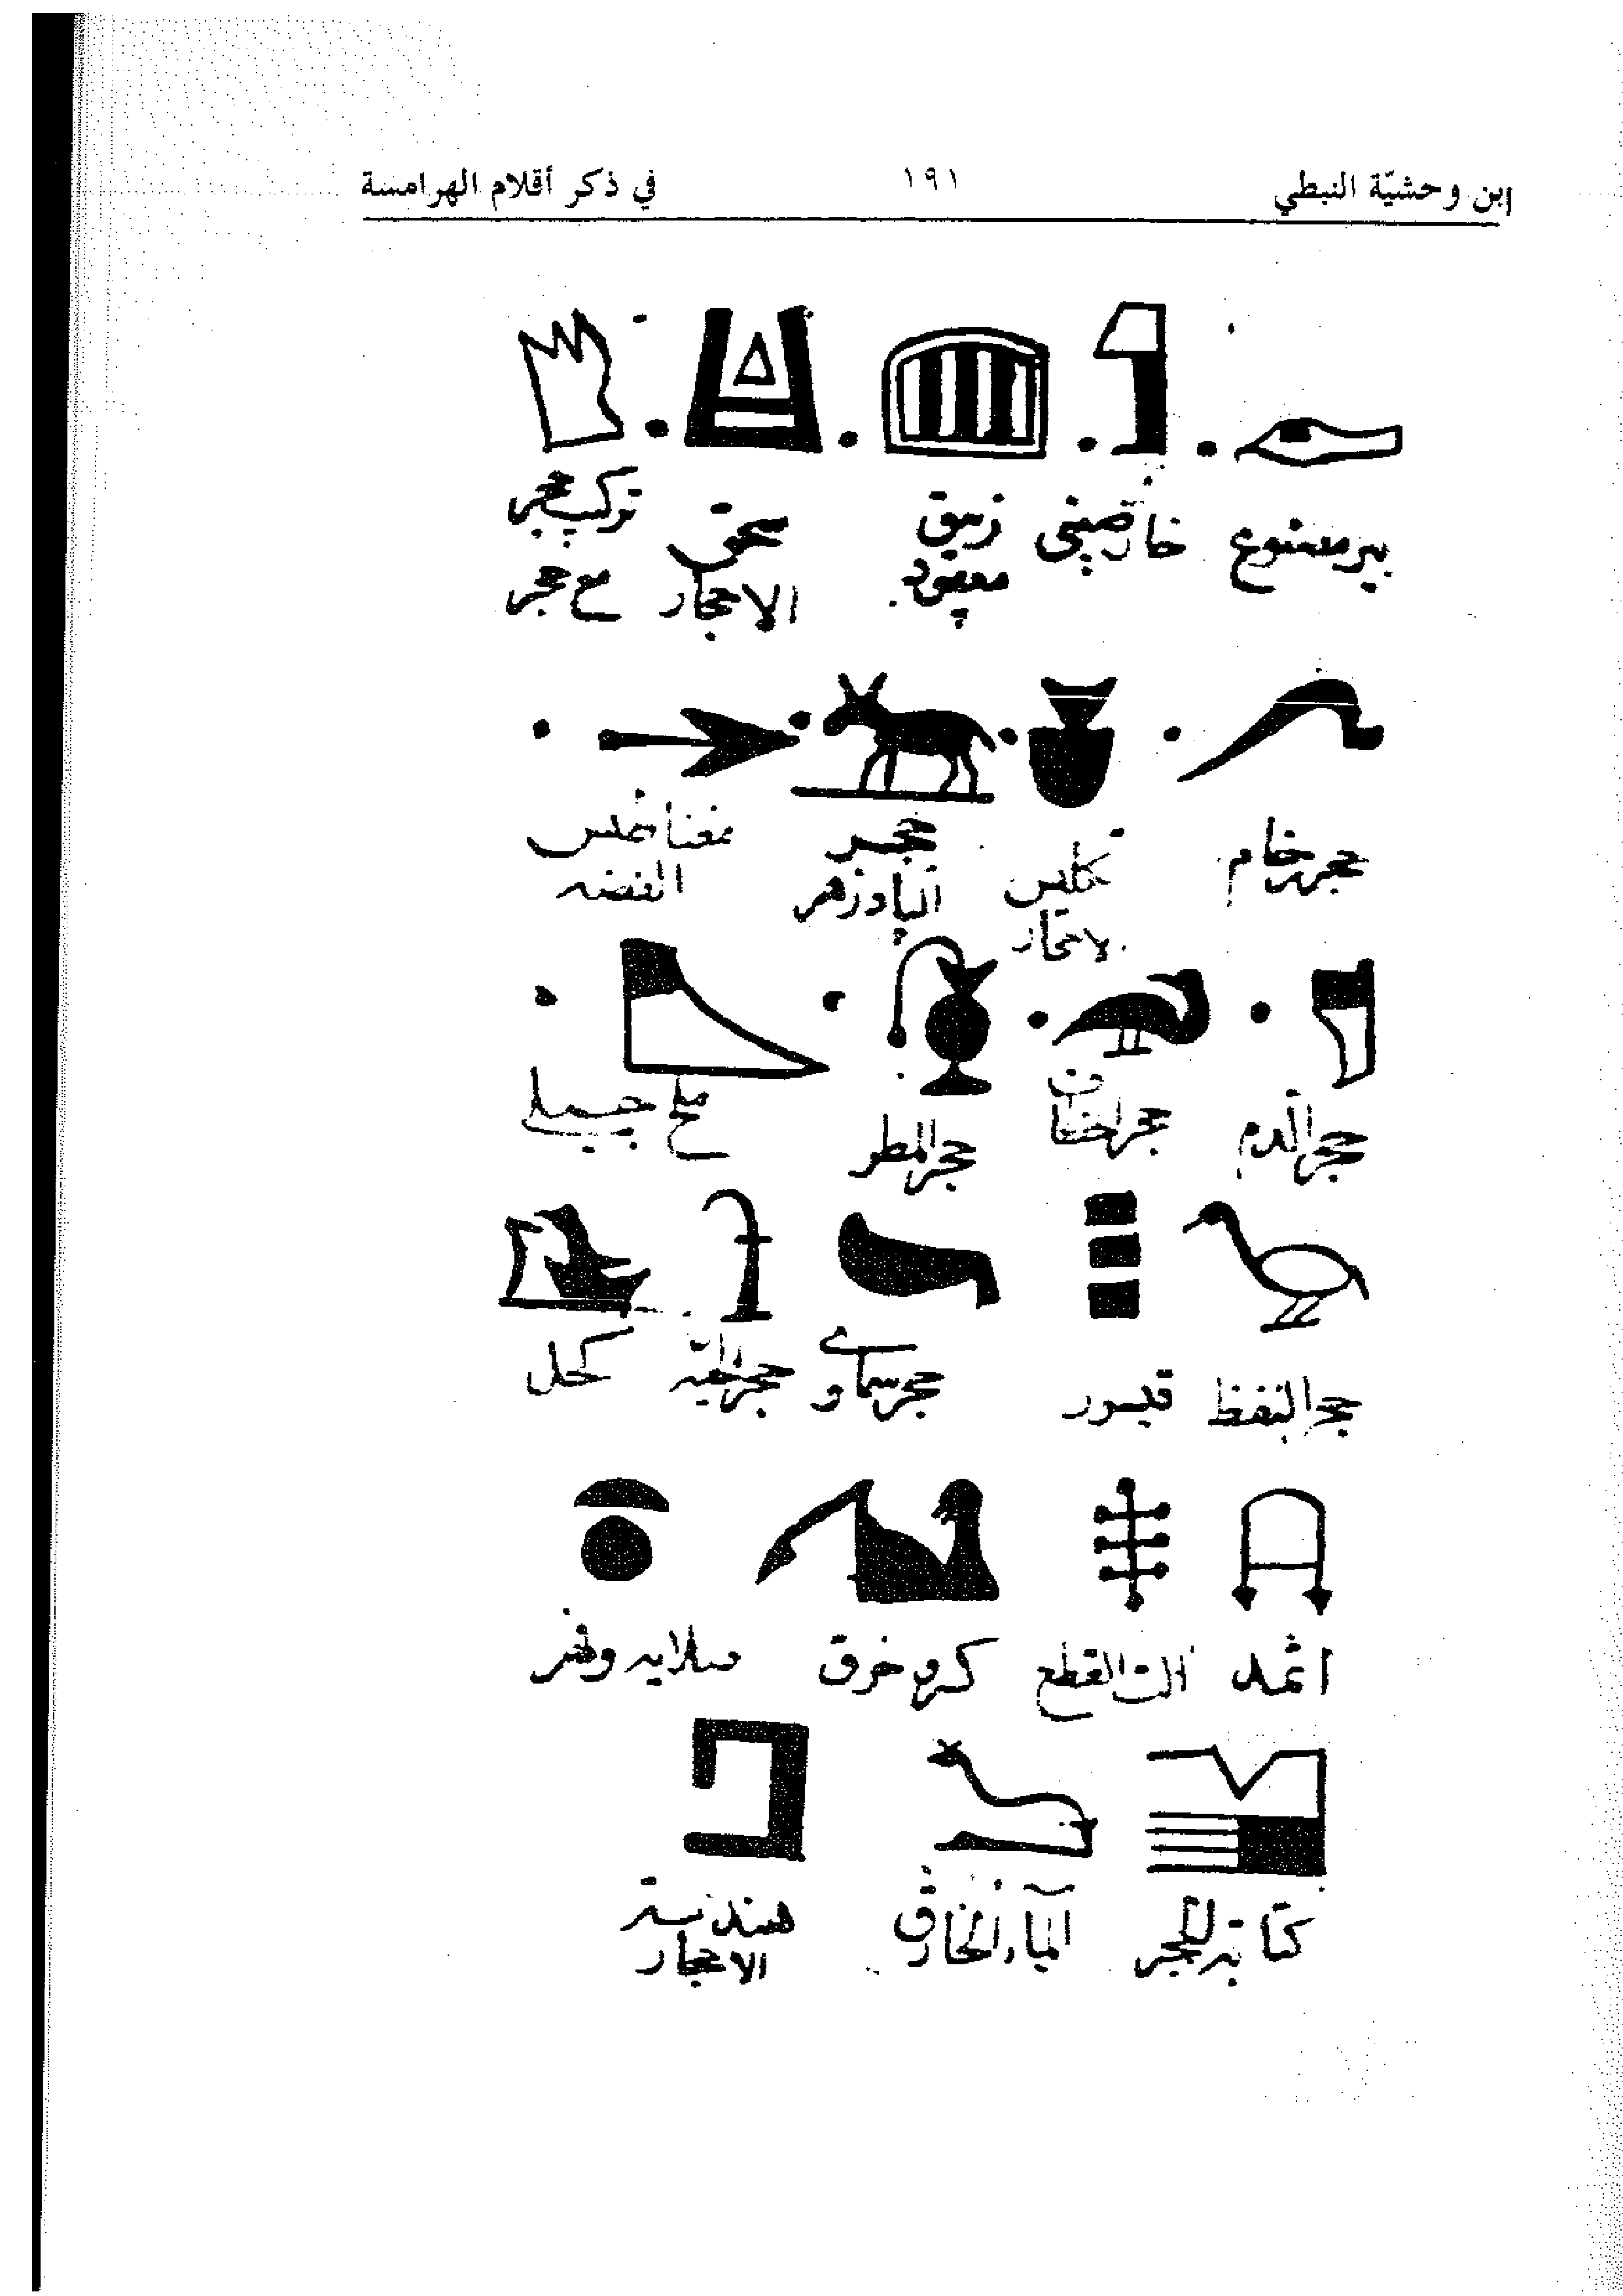 ابن وحشيّة النبطي ١٩١ في ذكر أقلام الهرامسة
بير مصنوع خارصيني زيبق معقود سحق الاحجار تركيب حجر مع حجر
حجر خام تكليس الاحجار حجر البادزهر الفضه
حجر الدم حجر المطر ملح جبلي
حجر النفط قيسور حجر سماوي حجر الحيه كحل
اثمد الت القطع كره خرق صلايه وفهر
كتابة للحجر الماء الخارق هندسة الاحجار